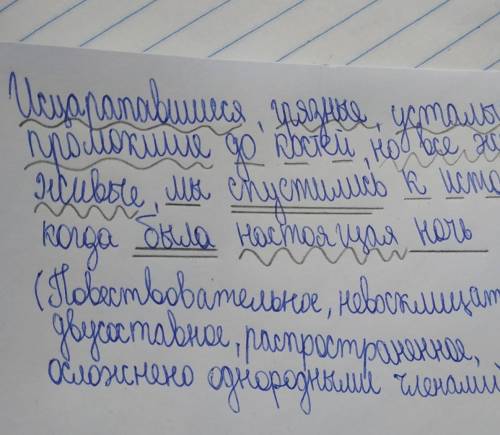 Исцарапавшиеся, грязные,
промокшие до костей, но все
живые, мы спустились к
когда была настоящая ночь
(Повествовательное,
двусоставное, распространенное,
осложнено однородными членами